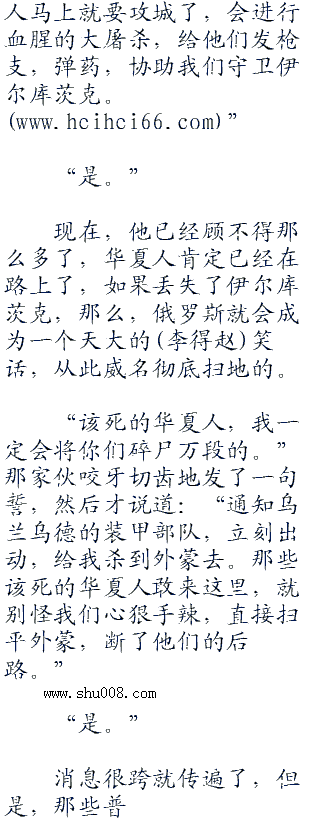 人马上就要攻城了，会进行
血腥的大屠杀，给他们发枪
支，弹药，协助我们守卫伊
尔库茨克。
(www.hcihci66.com)”
“是。”
现在，他已经顾不得那
么多了，华夏人肯定已经在
路上了，如果丢失了伊尔库
茨克，那么，俄罗斯就会成
为一个天大的(李得赵)笑
话，从此威名彻底扫地的。
“该死的华夏人，我一
定会将你们碎尸万段的。”
那家伙咬牙切齿地发了一句
誓，然后才说道：“通知乌
兰乌德的装甲部队，立刻出
动，给我杀到外蒙去。那些
该死的华夏人敢来这里，就
别怪我们心狠手辣，直接扫
平外蒙，断了他们的后
路。”
www.shu008.com
“是。”
消息很跨就传遍了，但
是，那些普